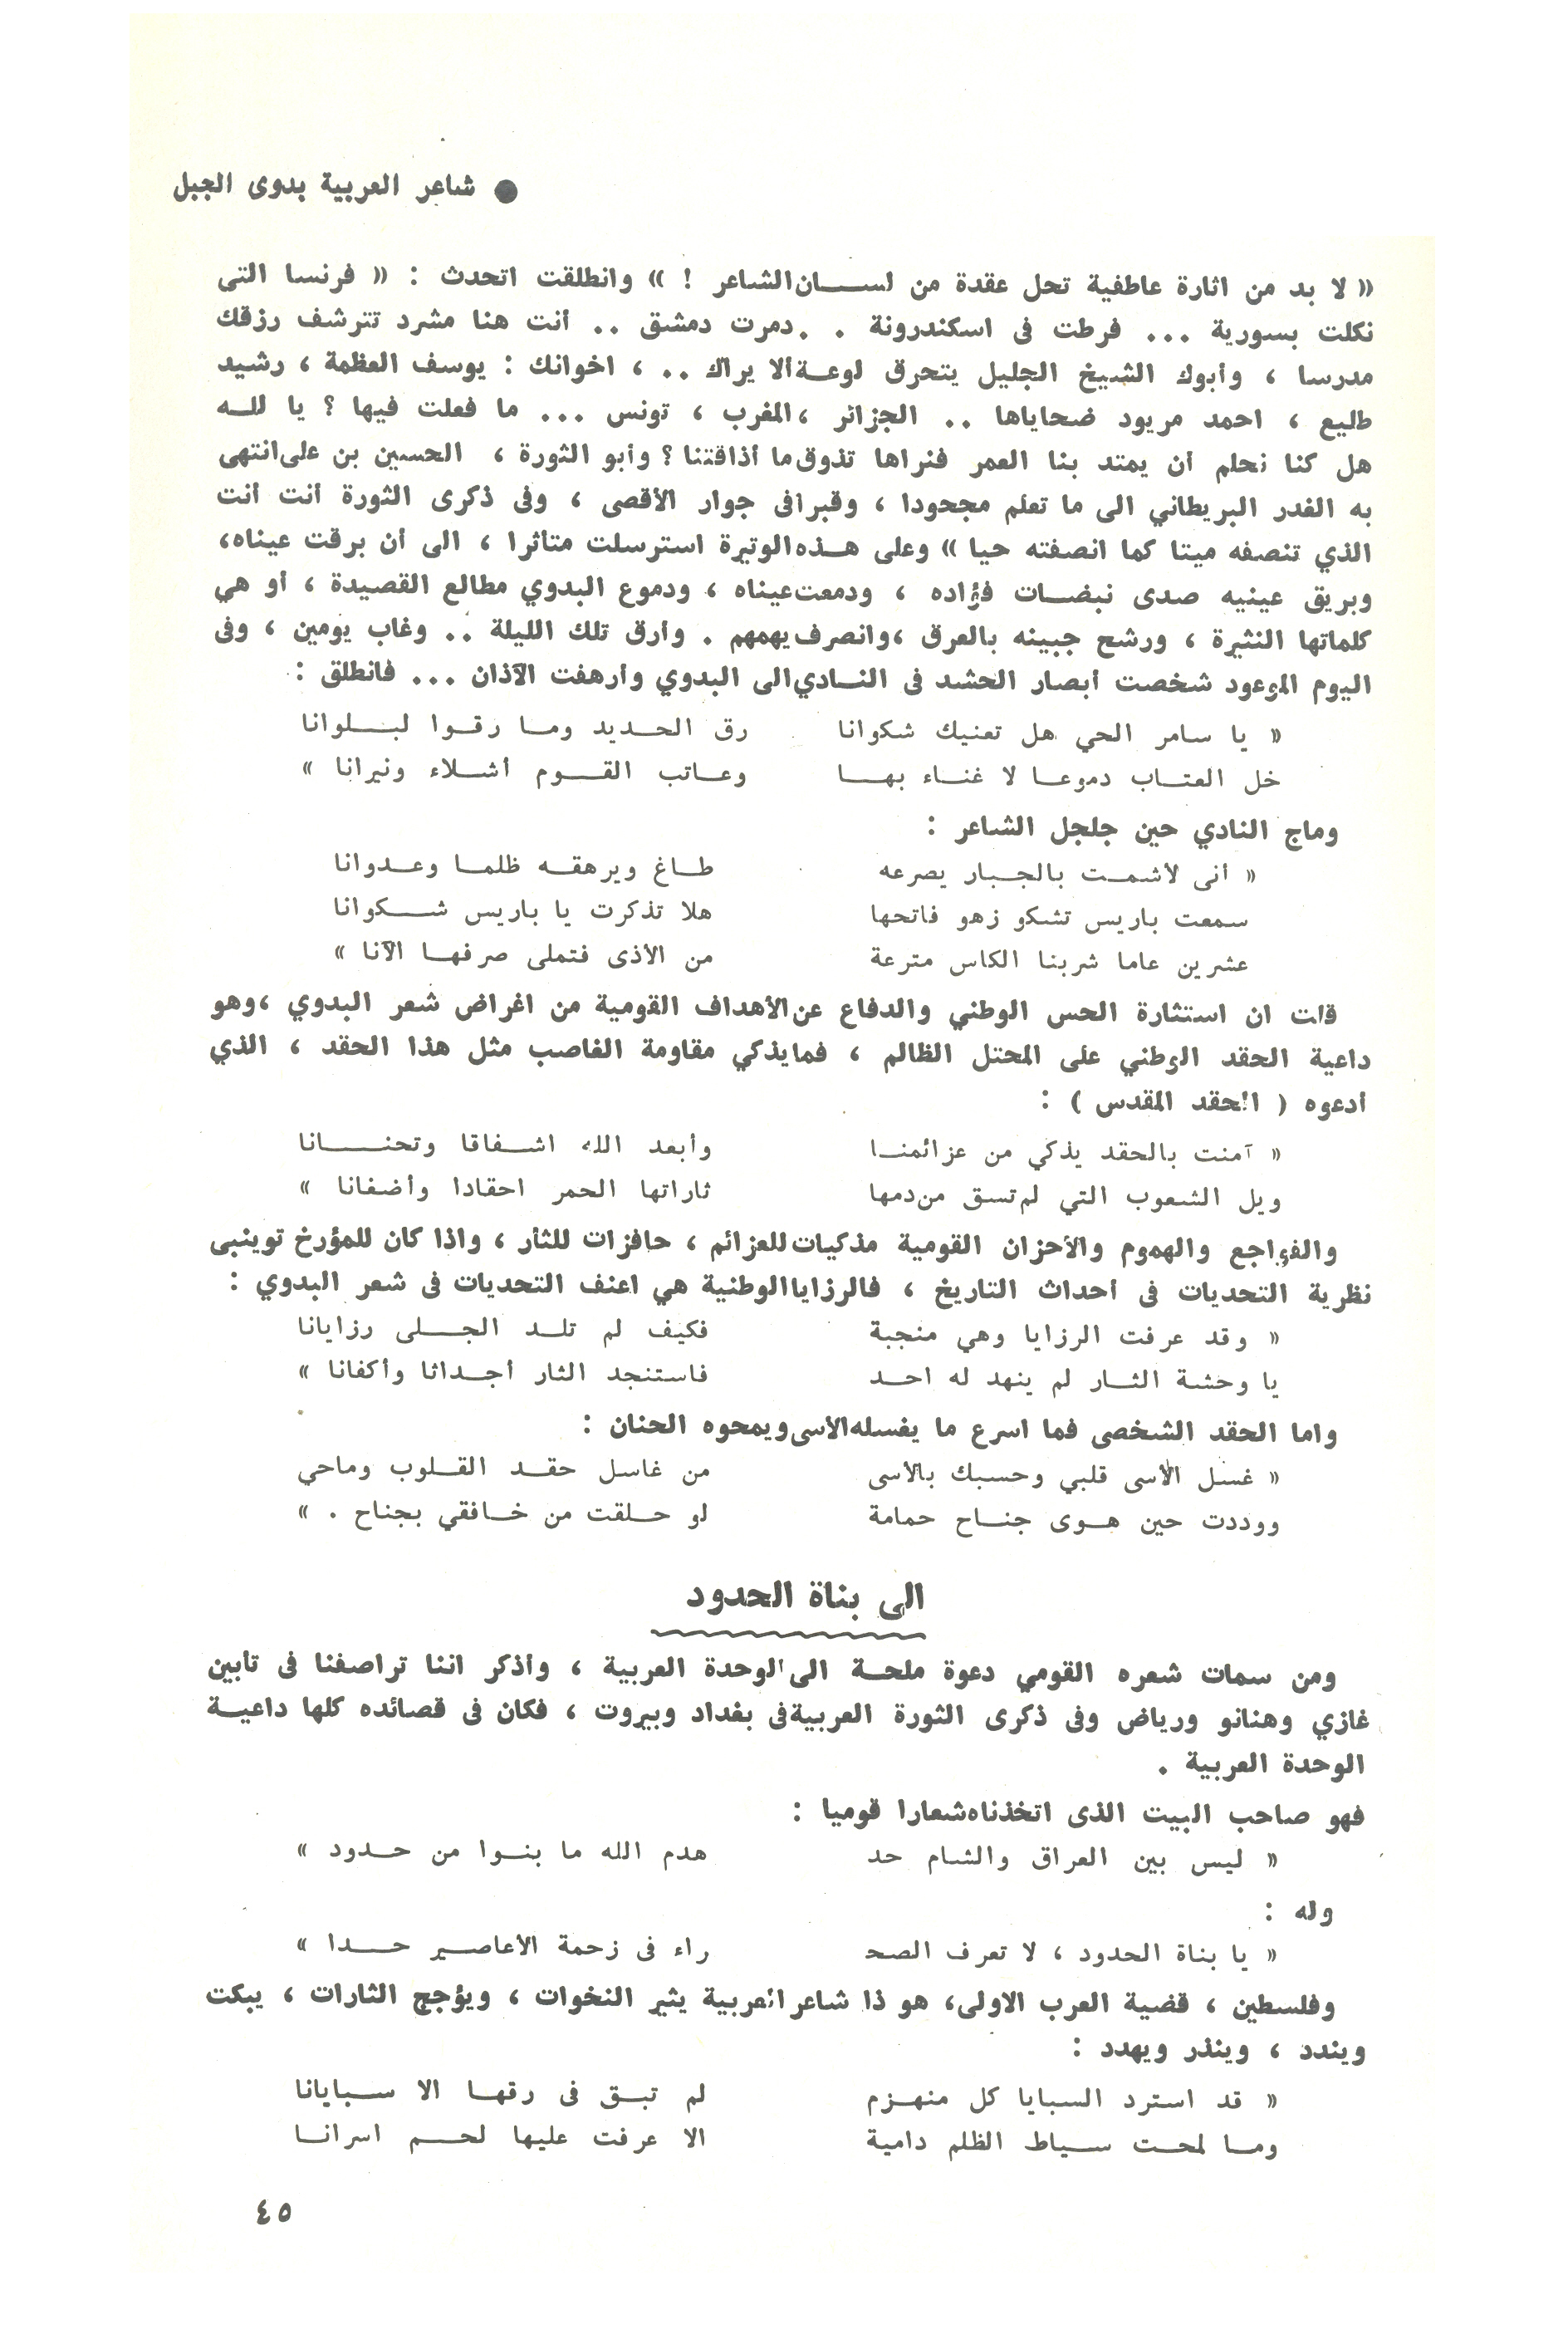 ● شاعر العربية بدوى الجبل
« لا بد من اثارة عاطفية تحل عقدة من لسان الشاعر ! » وانطلقت اتحدث : « فرنسا التى
نكلت بسورية ... فرطت فى اسكندرونة . . دمرت دمشق .. أنت هنا مشرد تترشف رزقك
مدرسا ، وأبوك الشيخ الجليل يتحرق لوعة ألا يراك .. ، اخوانك : يوسف العظمة ، رشيد
طليع ، احمد مريود ضحاياها .. الجزائر ، المغرب ، تونس ... ما فعلت فيها ؟ يا لله
هل كنا نحلم أن يمتد بنا العمر فنراها تذوق ما أذاقتنا ؟ وأبو الثورة ، الحسين بن على انتهى
به الغدر البريطاني الى ما تعلم مجحودا ، وقبرا فى جوار الأقصى ، وفى ذكرى الثورة أنت أنت
الذي تنصفه ميتا كما انصفته حيا » وعلى هذه الوتيرة استرسلت متاثرا ، الى أن برقت عيناه ،
وبريق عينيه صدى نبضات فؤاده ، ودمعت عيناه ، ودموع البدوي مطالع القصيدة ، أو هي
كلماتها النثيرة ، ورشح جبينه بالعرق ، وانصرف يهمهم . وأرق تلك الليلة .. وغاب يومين ، وفى
اليوم الموعود شخصت أبصار الحشد فى النادي الى البدوي وأرهفت الآذان ... فانطلق :
« يا سامر الحي هل تعنيك شكوانا رق الحديد وما رقوا لبلوانا
خل العتاب دموعا لا غناء بها وعاتب القوم أشلاء ونيرانا »
وماج النادي حين جلجل الشاعر :
« أنى لاشمت بالجبار يصرعه طاغ ويرهقه ظلما وعدوانا
سمعت باريس تشكو زهو فاتحها هلا تذكرت يا باريس شكوانا
عشرين عاما شربنا الكاس مترعة من الأذى فتملى صرفها الآنا »
قلت ان استثارة الحس الوطني والدفاع عن الأهداف القومية من اغراض شعر البدوي ، وهو
داعية الحقد الوطني على المحتل الظالم ، فما يذكي مقاومة الغاصب مثل هذا الحقد ، الذي
أدعوه ( الحقد المقدس ) :
« آمنت بالحقد يذكي من عزائمنا وأبعد الله اشفاقا وتحنانا
ويل الشعوب التي لم تسق من دمها ثاراتها الحمر احقادا وأضغانا »
والفواجع والهموم والأحزان القومية مذكيات للعزائم ، حافزات للثأر ، واذا كان للمؤرخ توينبى
نظرية التحديات فى أحداث التاريخ ، فالرزايا الوطنية هي اعنف التحديات فى شعر البدوي :
« وقد عرفت الرزايا وهي منجبة فكيف لم تلد الجلى رزايانا
يا وحشة الثار لم ينهد له احد فاستنجد الثار أجداثا وأكفانا »
واما الحقد الشخصى فما اسرع ما يغسله الأسى ويمحوه الحنان :
« غسل الأسى قلبي وحسبك بالأسى من غاسل حقد القلوب وماحي
ووددت حين هوى جناح حمامة لو حلقت من خافقي بجناح . »
الى بناة الحدود
ومن سمات شعره القومي دعوة ملحة الى الوحدة العربية ، وأذكر اننا تراصفنا فى تابين
غازي وهنانو ورياض وفى ذكرى الثورة العربية فى بغداد وبيروت ، فكان فى قصائده كلها داعية
الوحدة العربية .
فهو صاحب البيت الذى اتخذناه شعارا قوميا :
« ليس بين العراق والشام حد هدم الله ما بنوا من حدود »
وله :
« يا بناة الحدود ، لا تعرف الصحـ راء فى زحمة الأعاصير حدا »
وفلسطين ، قضية العرب الاولى ، هو ذا شاعر العربية يثير النخوات ، ويؤجج الثارات ، يبكت
ويندد ، وينذر ويهدد :
« قد استرد السبايا كل منهزم لم تبق فى رقها الا سبايانا
وما لمحت سياط الظلم دامية الا عرفت عليها لحم اسرانا
٤٥